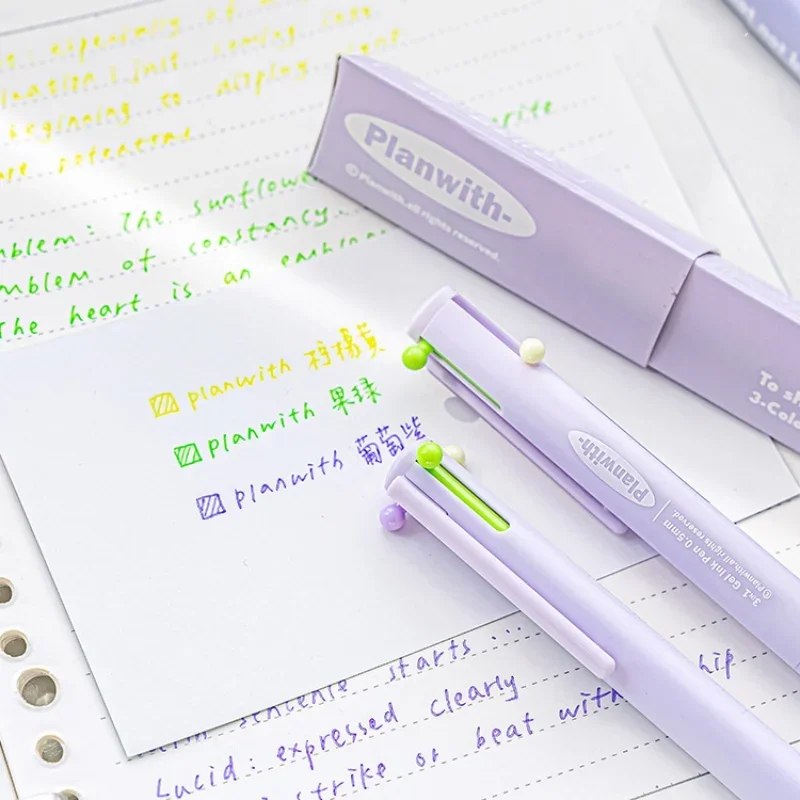 : especially of
ination : just coming into
beginning to display
potential
write
mblem: The sunflowe
mblem of constancy.
The heart is an emblem
Planwith-
©Planwith.all rights reserved.
To sh
3-Colo
planwith 柠檬黄
planwith 果绿
planwith 葡萄紫
Planwith-
3in1 Gel Ink Pen 0.5mm
©Planwith.all rights reserved.
sentence starts ...
hip
Lucid: expressed clearly
strike or beat with